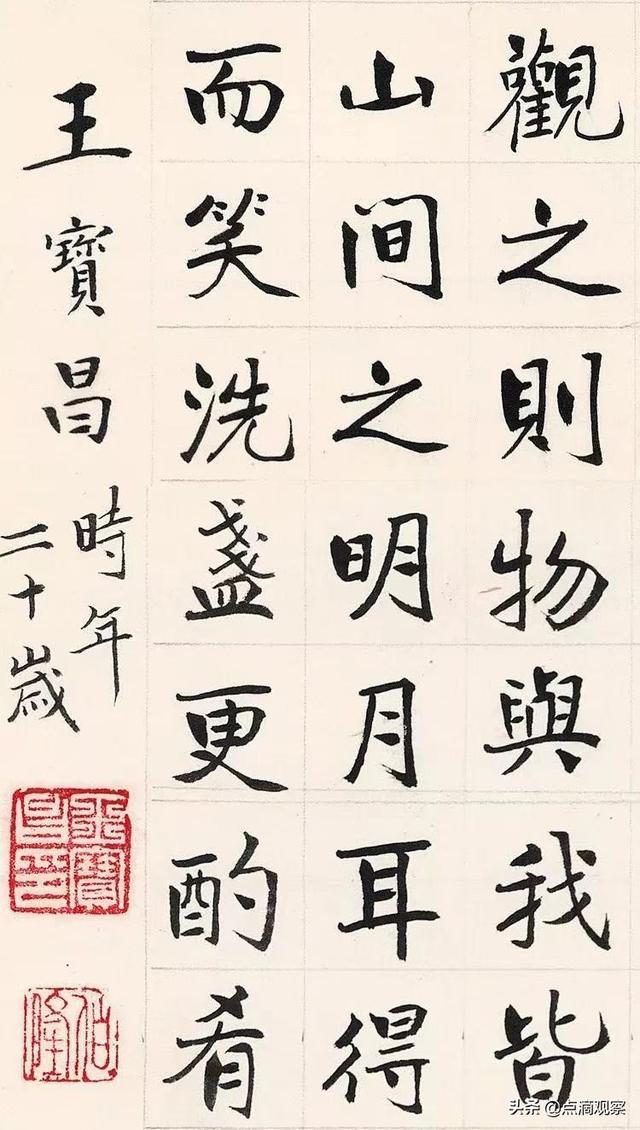 觀之則物與我皆
山間之明月耳得
而笑洗盞更酌肴
王寶昌
時年
二十歲
王寶昌印
头条 @点滴观察